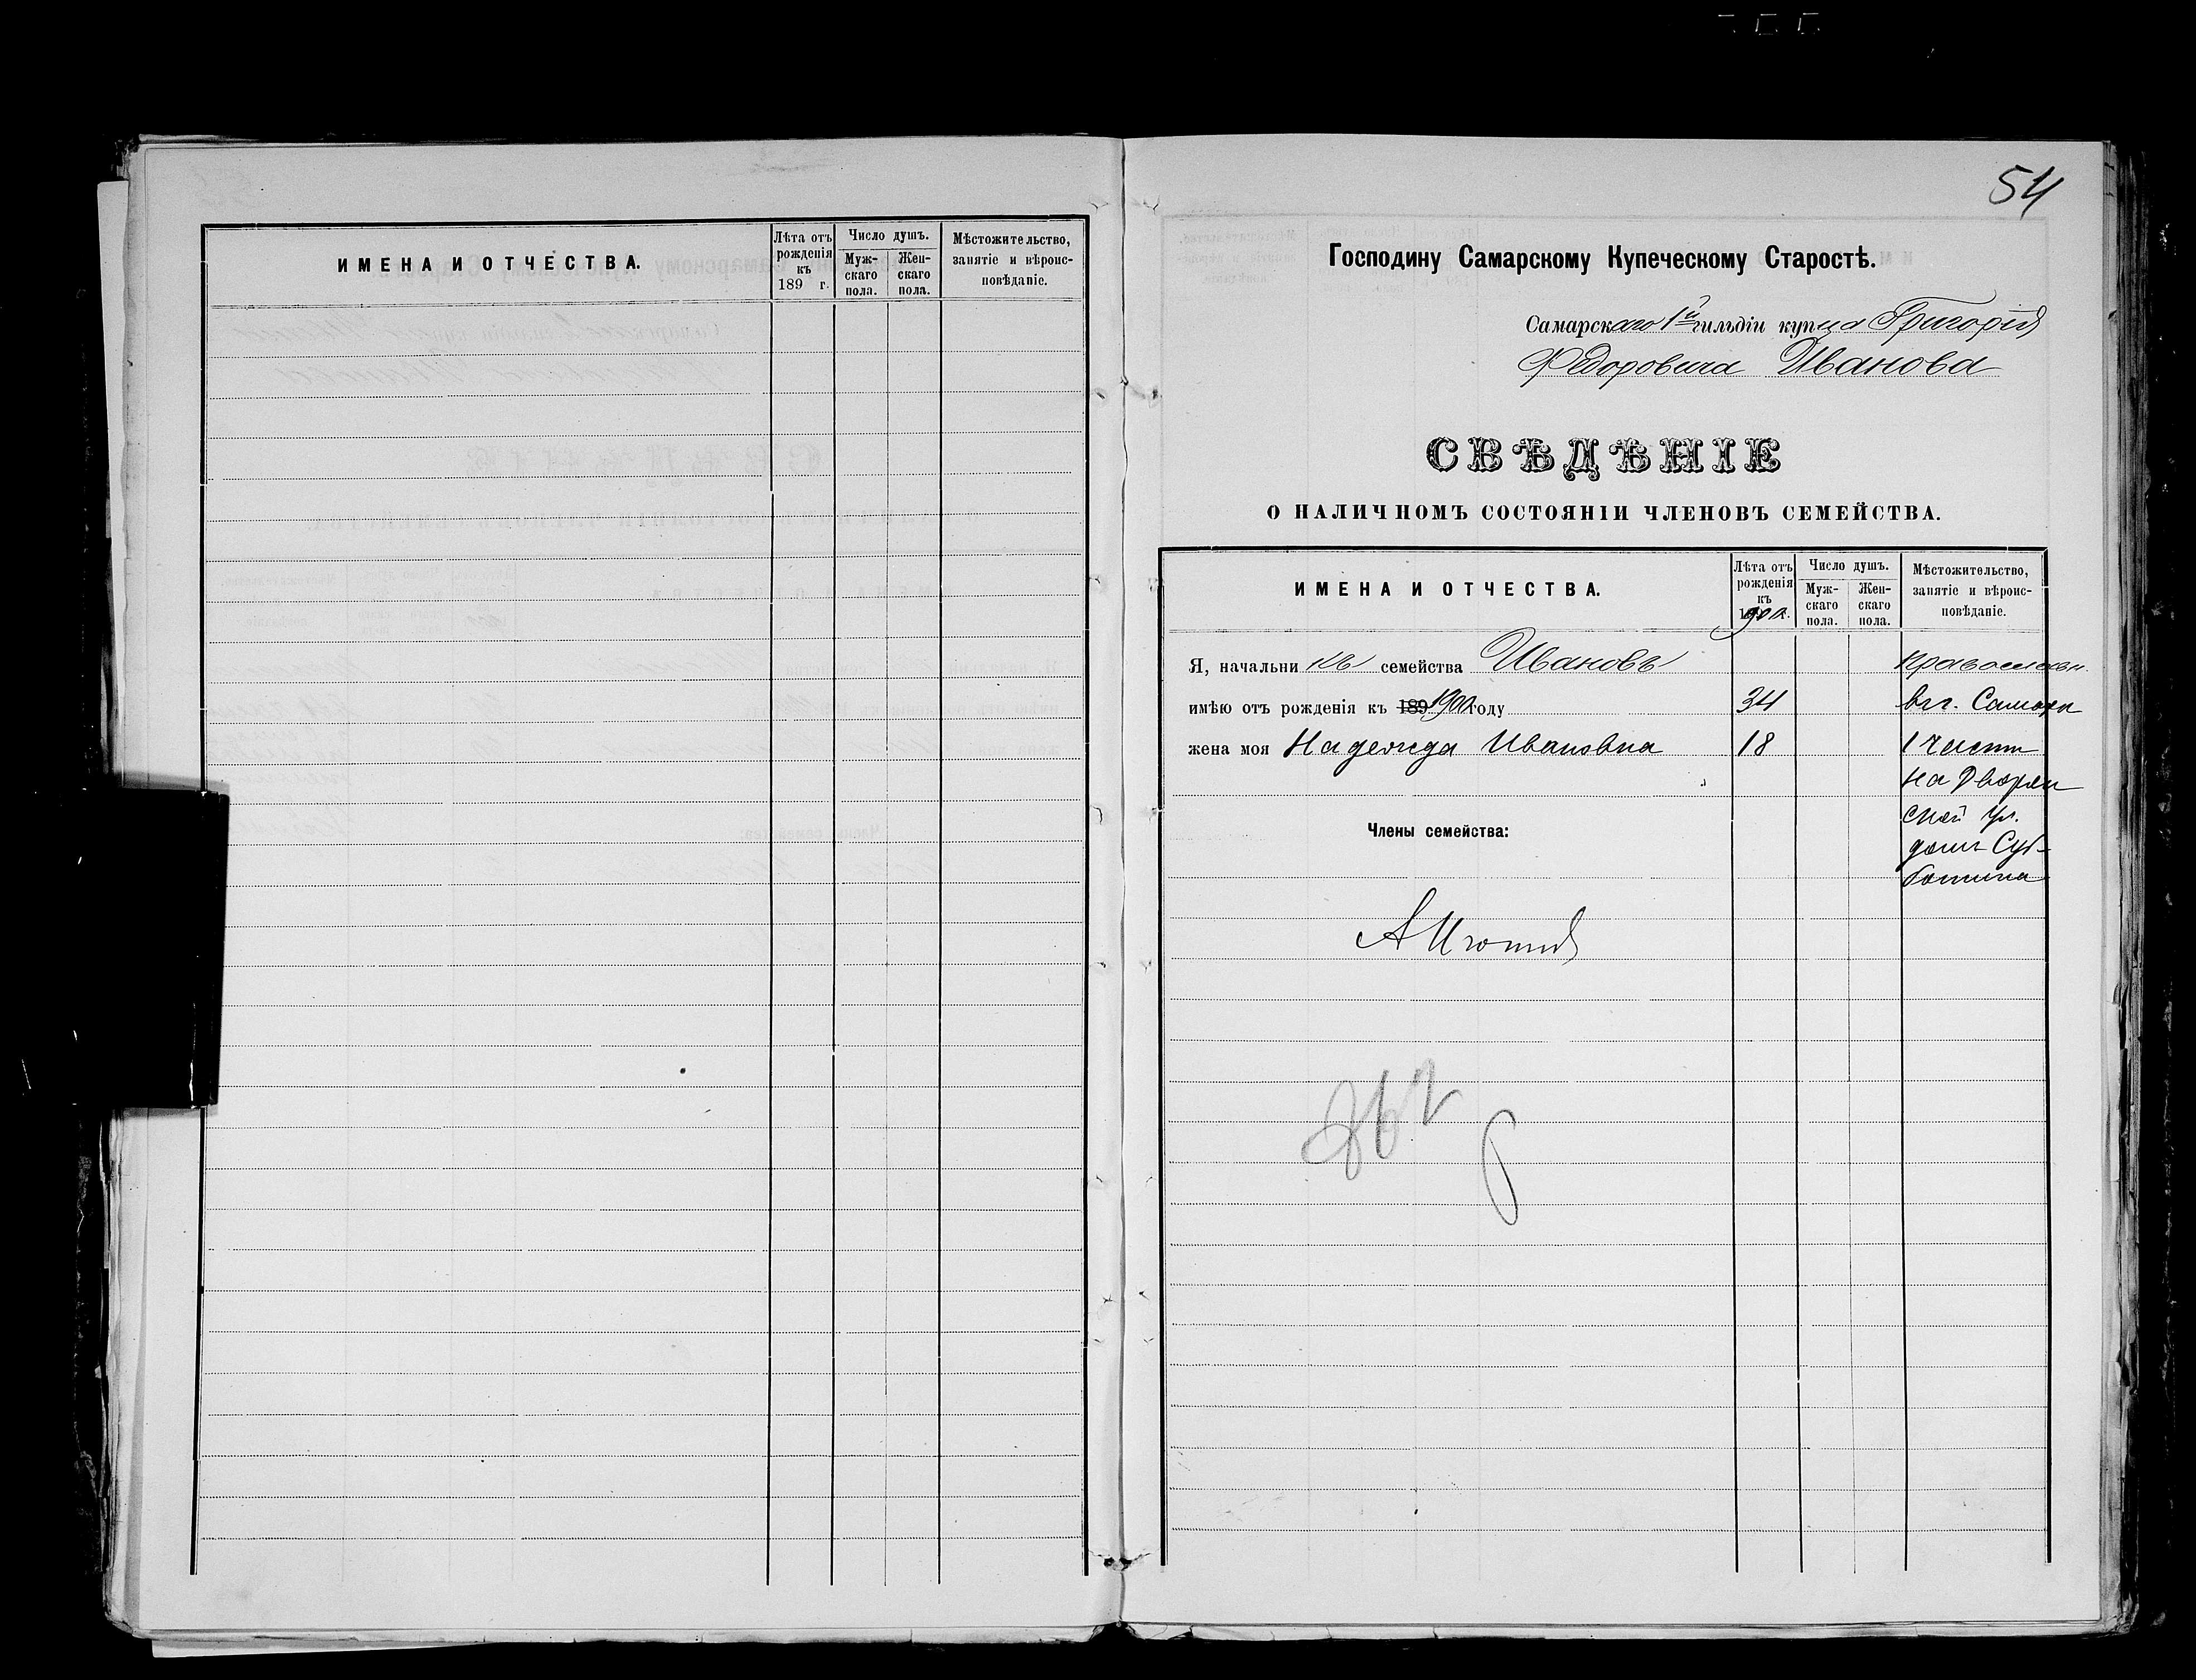 ИМЕНА И ОТЧЕСТВА.
Лѣта отъ рожденія къ 189 г.
Число душъ.
Муж-скаго пола.
Жен-скаго пола.
Мѣстожительство, занятіе и вѣроис-повѣданіе.
54
Господину Самарскому Купеческому Старостѣ.
Самарскаго 1й гильдіи купца Григорія
Федоровича Иванова
СВѢДѢНІЕ
О НАЛИЧНОМЪ СОСТОЯНІИ ЧЛЕНОВЪ СЕМЕЙСТВА.
ИМЕНА И ОТЧЕСТВА.
Лѣта отъ рожденія къ 1900 г.
Число душъ.
Муж-скаго пола.
Жен-скаго пола.
Мѣстожительство, занятіе и вѣроис-повѣданіе.
Я, начальникъ семейства Ивановъ православн.
имѣю отъ рожденія къ 189 1900 году 34 въ г. Самара
жена моя Надежда Ивановна 18 1 части
на Дворян
ской ул.
Члены семейства:
домъ Суб-
ботина